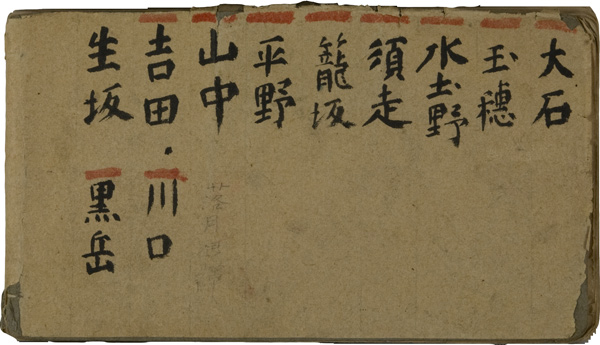 大石
玉穂
水土野
須走
籠坂
平野
山中
吉田・川口
生坂 黒岳